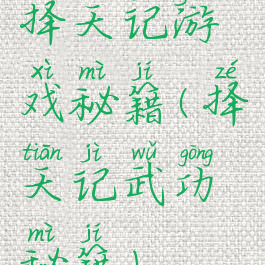 择天记游
xì mì jí zé
戏秘籍(择
tiān jì wǔ gōng
天记武功
mì jí
秘籍)